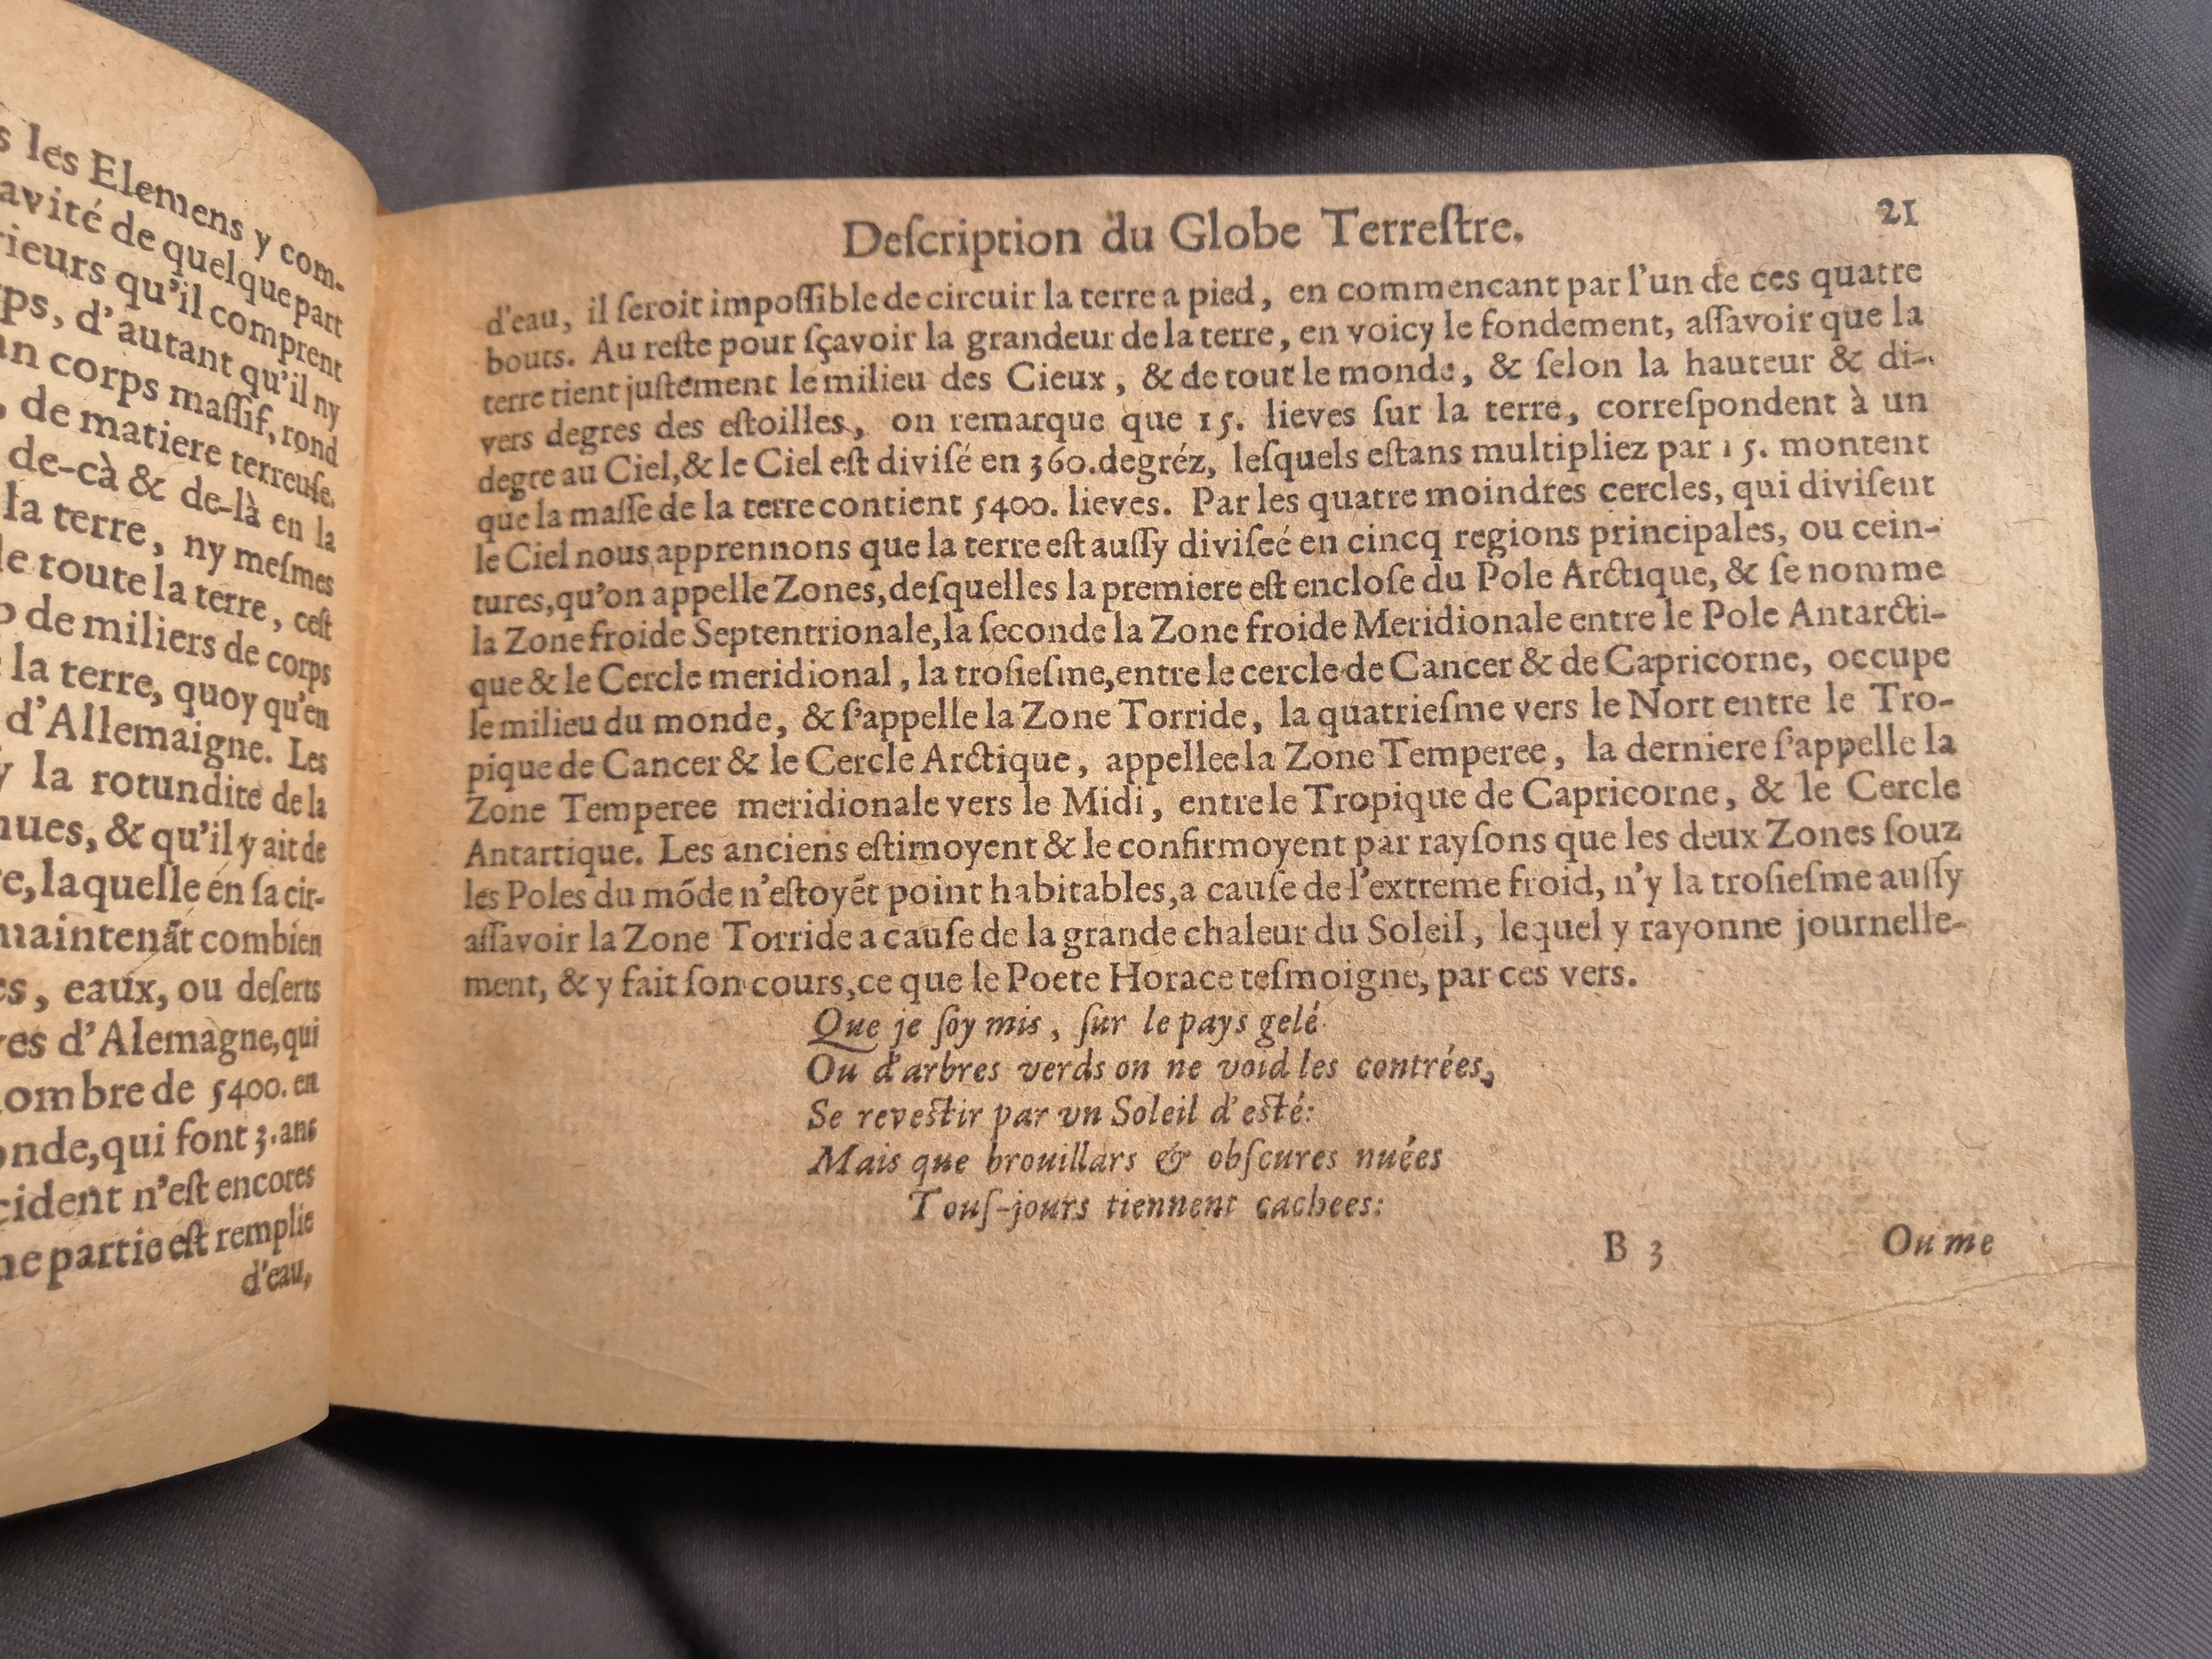 s les Elemens y com-
avité de quelque part
rieurs qu'il comprent
ps, d'autant qu'il ny
an corps maſſif, rond
, de matiere terreuſe.
de-cà & de-là en la
la terre, ny meſmes
de toute la terre, ceſt
o de miliers de corps
la terre, quoy qu'en
d'Allemaigne. Les
y la rotundite de la
nues, & qu'il y ait de
e, laquelle en ſa cir-
maintenãt combien
es, eaux, ou deſerts
ves d'Alemagne, qui
ombre de 5400. en
onde, qui font 3. ans
cident n'eſt encores
ne partie eſt remplie
d'eau,
Deſcription du Globe Terreſtre.
21
d'eau, il ſeroit impoſſible de circuir la terre a pied, en commencant par l'un de ces quatre
bouts. Au reſte pour ſçavoir la grandeur de la terre, en voicy le fondement, aſſavoir que la
terre tient juſtement le milieu des Cieux, & de tout le monde, & ſelon la hauteur & di-
vers degres des eſtoilles, on remarque que 15. lieves ſur la terre, correſpondent à un
degre au Ciel, & le Ciel eſt diviſé en 360. degréz, leſquels eſtans multipliez par 15. montent
que la maſſe de la terre contient 5400. lieves. Par les quatre moindres cercles, qui diviſent
le Ciel nous apprennons que la terre eſt auſſy diviſeé en cincq regions principales, ou cein-
tures, qu'on appelle Zones, deſquelles la premiere eſt encloſe du Pole Arctique, & ſe nomme
la Zone froide Septentrionale, la ſeconde la Zone froide Meridionale entre le Pole Antarcti-
que & le Cercle meridional, la troſieſme, entre le cercle de Cancer & de Capricorne, occupe
le milieu du monde, & ſ'appelle la Zone Torride, la quatrieſme vers le Nort entre le Tro-
pique de Cancer & le Cercle Arctique, appellee la Zone Temperee, la derniere ſ'appelle la
Zone Temperee meridionale vers le Midi, entre le Tropique de Capricorne, & le Cercle
Antartique. Les anciens eſtimoyent & le confirmoyent par rayſons que les deux Zones ſouz
les Poles du mõde n'eſtoyẽt point habitables, a cauſe de l'extreme froid, n'y la troſieſme auſſy
aſſavoir la Zone Torride a cauſe de la grande chaleur du Soleil, lequel y rayonne journelle-
ment, & y fait ſon cours, ce que le Poete Horace teſmoigne, par ces vers.
Que je ſoy mis, ſur le pays gelé
Ou d'arbres verds on ne void les contrées,
Se reveſtir par vn Soleil d'eſté:
Mais que brouillars & obſcures nuées
Touſ-jours tiennent cachees:
B 3
Ou me